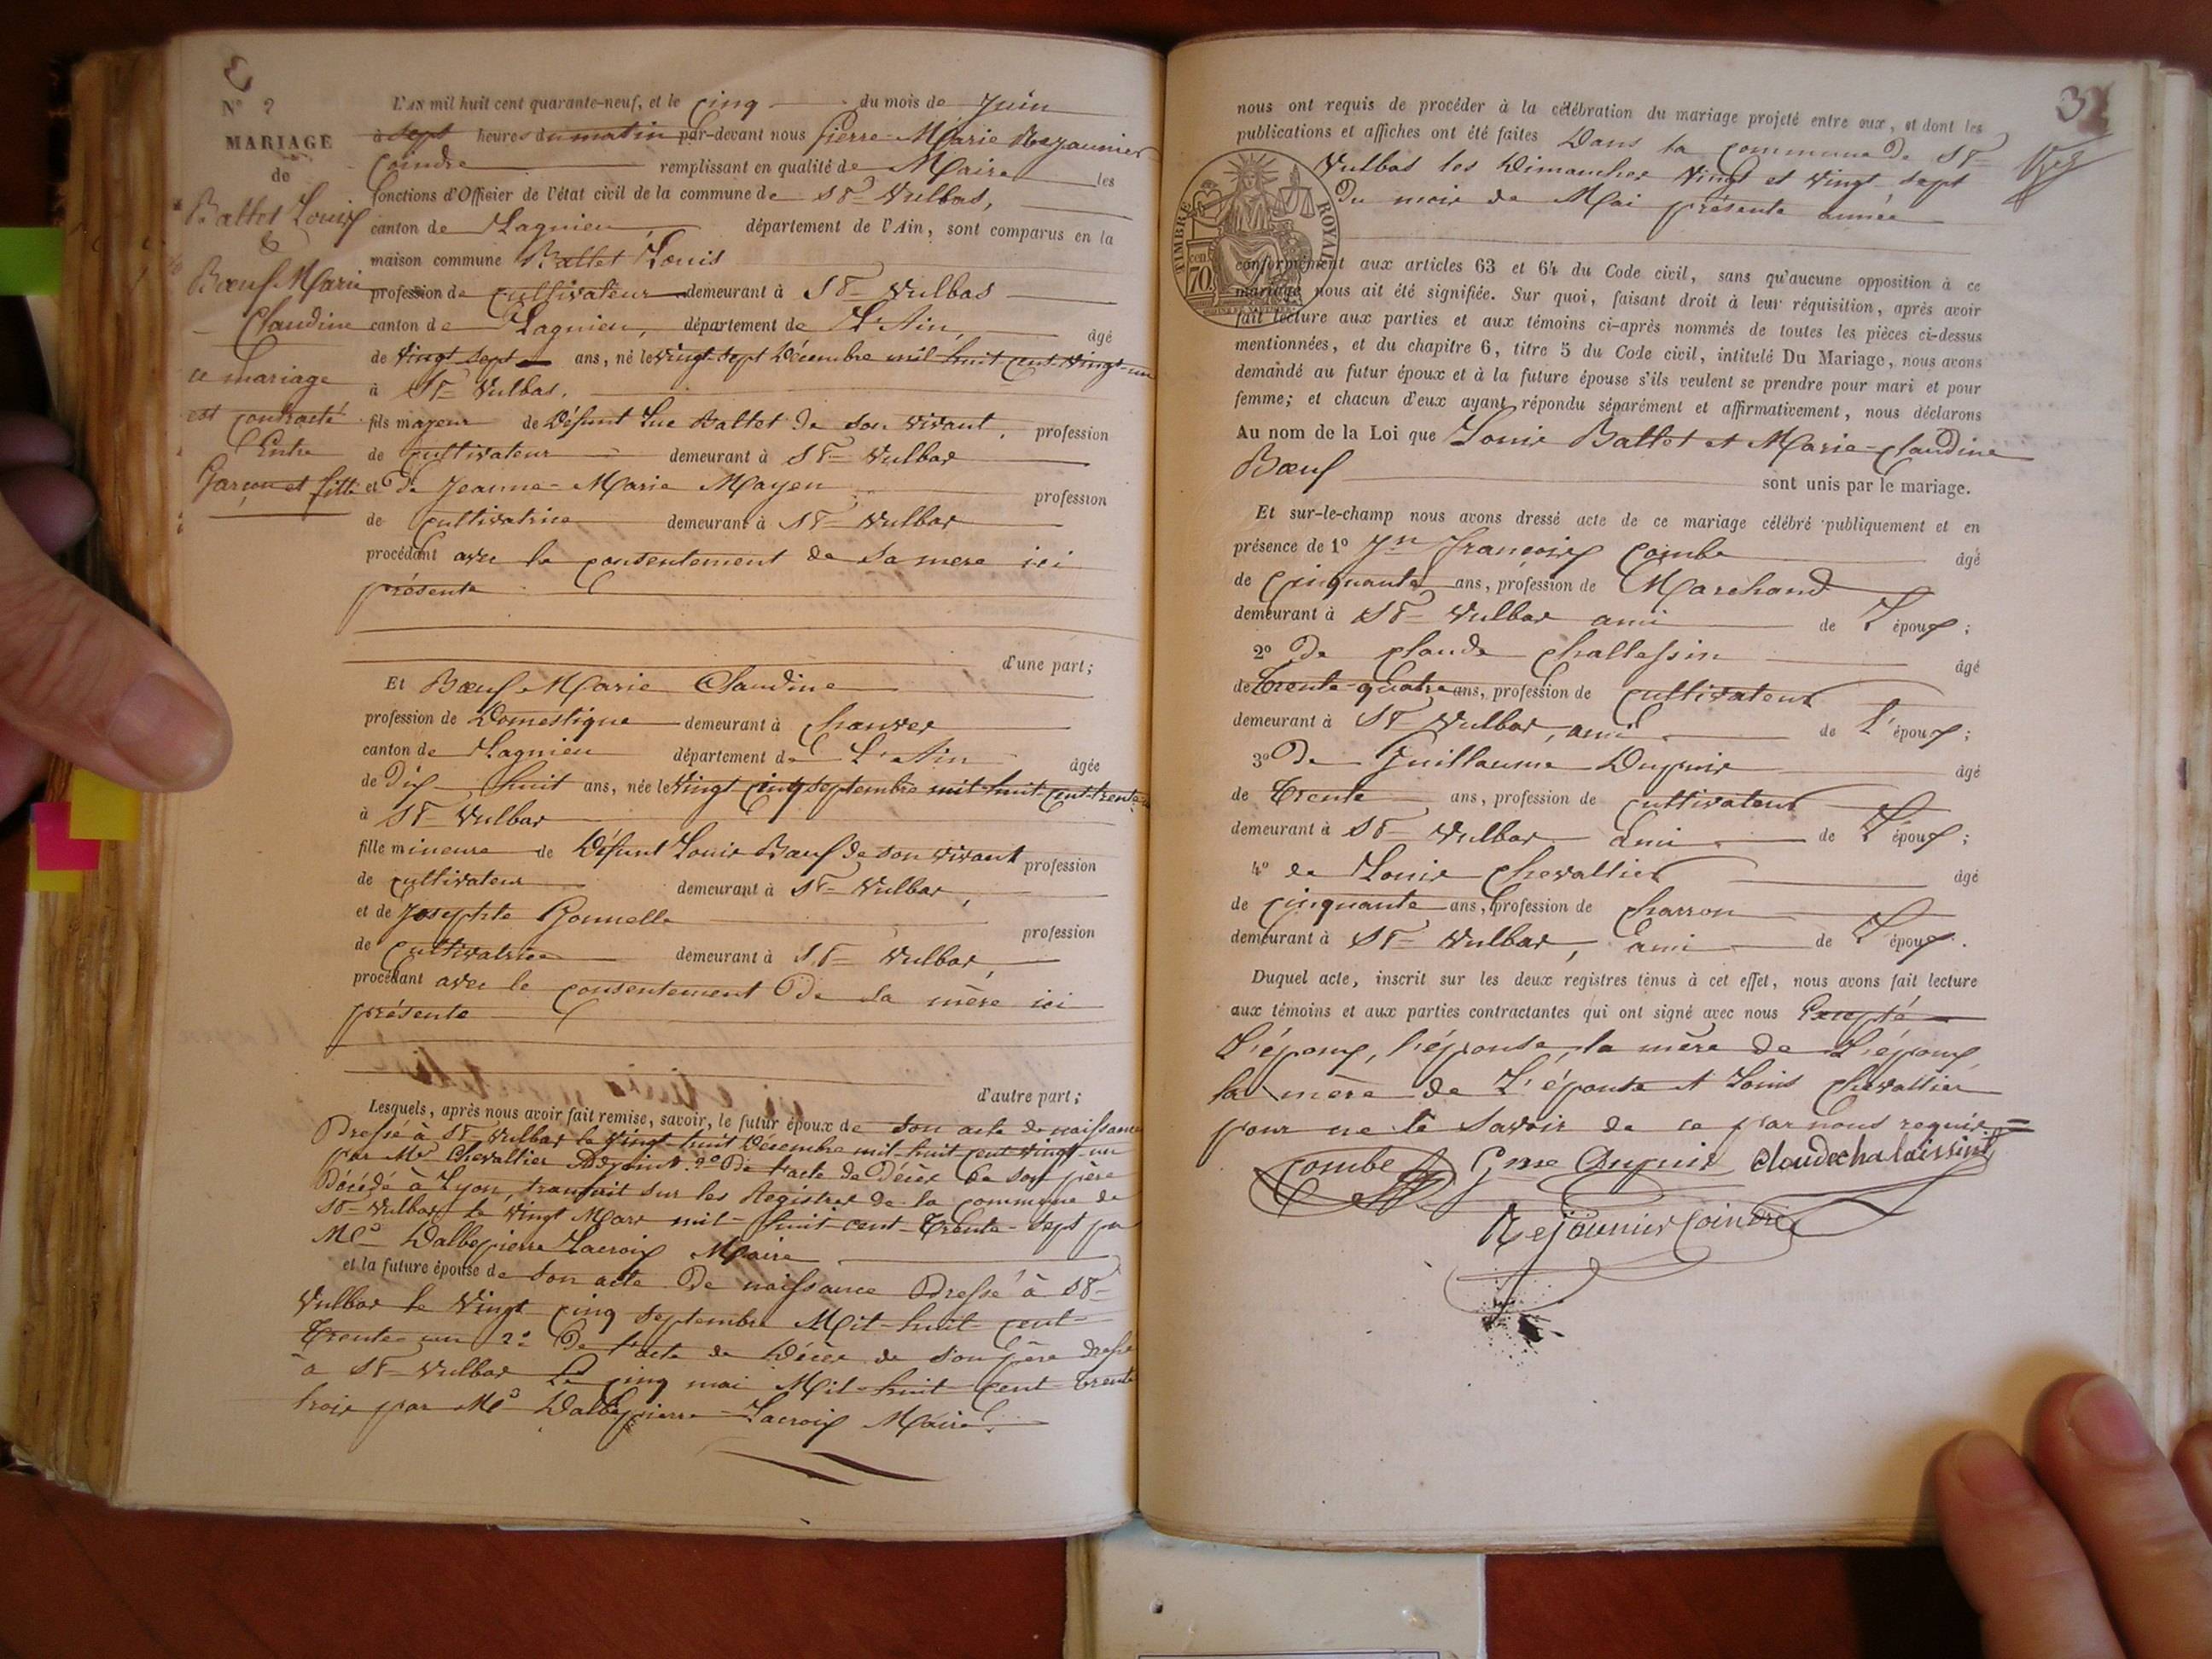 N° ?
MARIAGE
de
Ballet Louis
&
Bœuf Marie
Claudine
ce mariage
est contracté
Entre
Garçon et fille
L'AN mil huit cent quarante-neuf, et le Cinq du mois de Juin
à sept heures du matin par-devant nous Pierre-Marie Rejaunier
Coindre remplissant en qualité de Maire les
fonctions d'Officier de l'état civil de la commune de St Vulbas,
canton de Lagnieu département de l'Ain, sont comparus en la
maison commune Ballet Louis
profession de cultivateur demeurant à St Vulbas
canton de Lagnieu, département de L'Ain, âgé
de Vingt-sept ans, né le vingt-sept Décembre mil-huit-cent-Vingt-un
à St Vulbas,
fils majeur de Défunt Luc Ballet de son vivant, profession
de Cultivateur demeurant à St Vulbas
et De Jeanne-Marie Mayen profession
de Cultivatrice demeurant à St Vulbas
procédant avec le consentement de sa mere ici
présente
d'une part;
Et Bœuf Marie Claudine
profession de Domestique demeurant à Chanves
canton de Lagnieu département de L'Ain âgée
de Dix-huit ans, née le Vingt Cinq septembre mil-huit-cent-trente
à St Vulbas
fille mineure de Défunt Louis Bœuf de son vivant profession
de cultivateur demeurant à St Vulbas,
et de Josephte Bonnelle profession
de Cultivatrice demeurant à St Vulbas,
procédant avec le consentement De sa mère ici
présente
d'autre part;
Lesquels, après nous avoir fait remise, savoir, le futur époux de son acte de naissance
Dressé à St Vulbas le vingt-huit Décembre mil-huit-cent-vingt-un
par Mr Chevallier Adjoint 2° De l'acte de Décès de son père
Décédé à Lyon, transcrit sur les Registres de la commune de
St-Vulbas le vingt Mars mil-huit-cent-Trente-sept par
Mr Dalbepierre Lacroix Maire
et la future épouse de son acte De naissance Dressé à St
Vulbas le Vingt cinq septembre Mil-huit-cent-
Trente-un 2° De l'acte de Décès de son père dressé
à St-Vulbas Le cinq mai Mil-huit-cent-trente
trois par Mr Dalbepierre-Lacroix Maire.
32
nous ont requis de procéder à la célébration du mariage projeté entre eux, et dont les
publications et affiches ont été faites Dans la commune De St
Vulbas les Dimanches Vingt et vingt-sept
Du mois de Mai présente année
TIMBRE ROYAL
70 cent
conformément aux articles 63 et 64 du Code civil, sans qu'aucune opposition à ce
mariage nous ait été signifiée. Sur quoi, faisant droit à leur réquisition, après avoir
fait lecture aux parties et aux témoins ci-après nommés de toutes les pièces ci-dessus
mentionnées, et du chapitre 6, titre 5 du Code civil, intitulé Du Mariage, nous avons
demandé au futur époux et à la future épouse s'ils veulent se prendre pour mari et pour
femme; et chacun d'eux ayant répondu séparément et affirmativement, nous déclarons
Au nom de la Loi que Louis Ballet et Marie-Claudine
Bœuf sont unis par le mariage.
Et sur-le-champ nous avons dressé acte de ce mariage célébré publiquement et en
présence de 1° Jn François Combe âgé
de Cinquante ans, profession de Marchand
demeurant à St Vulbas ami de L'époux;
2° De Claude Challessin âgé
de Trente-quatre ans, profession de Cultivateur
demeurant à St Vulbas, ami de L'époux;
3° De Guillaume Dupuis âgé
de Trente ans, profession de cultivateur
demeurant à St Vulbas ami de L'époux;
4° de Louis Chevallier âgé
de cinquante ans, profession de charron
demeurant à St Vulbas, ami de L'époux.
Duquel acte, inscrit sur les deux registres tenus à cet effet, nous avons fait lecture
aux témoins et aux parties contractantes qui ont signé avec nous Excepté
L'époux, l'épouse, la mère de L'époux
la mère de L'épouse et Louis Chevallier
pour ne le savoir de ce par nous requis =
Combe Gme Dupuis claudechalaissin
Rejaunier Coindre